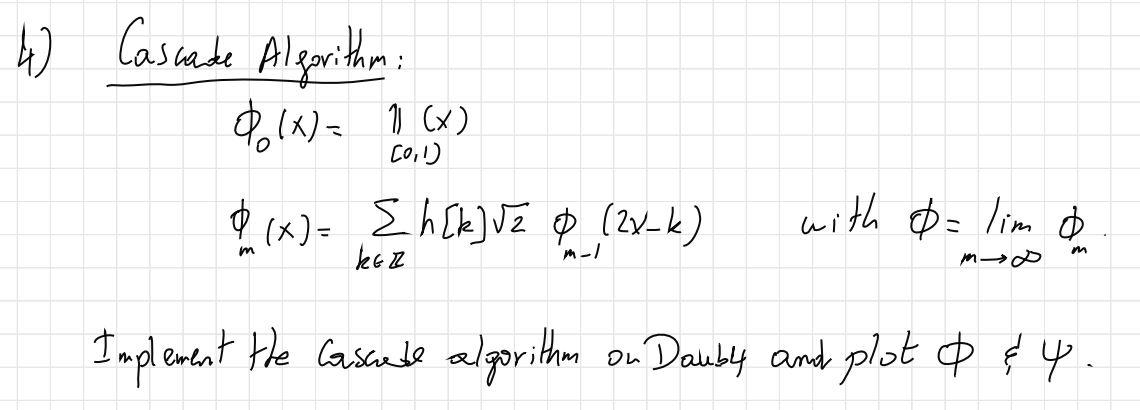 4) Cascade Algorithm:
ϕ₀(x) = 𝟙[0,1)(x)
ϕₘ(x) = ∑_{k∈ℤ} h[k]√2 ϕₘ₋₁(2x-k) with ϕ = lim_{m→∞} ϕₘ.
Implement the Cascade algorithm on Daub4 and plot ϕ & ψ.